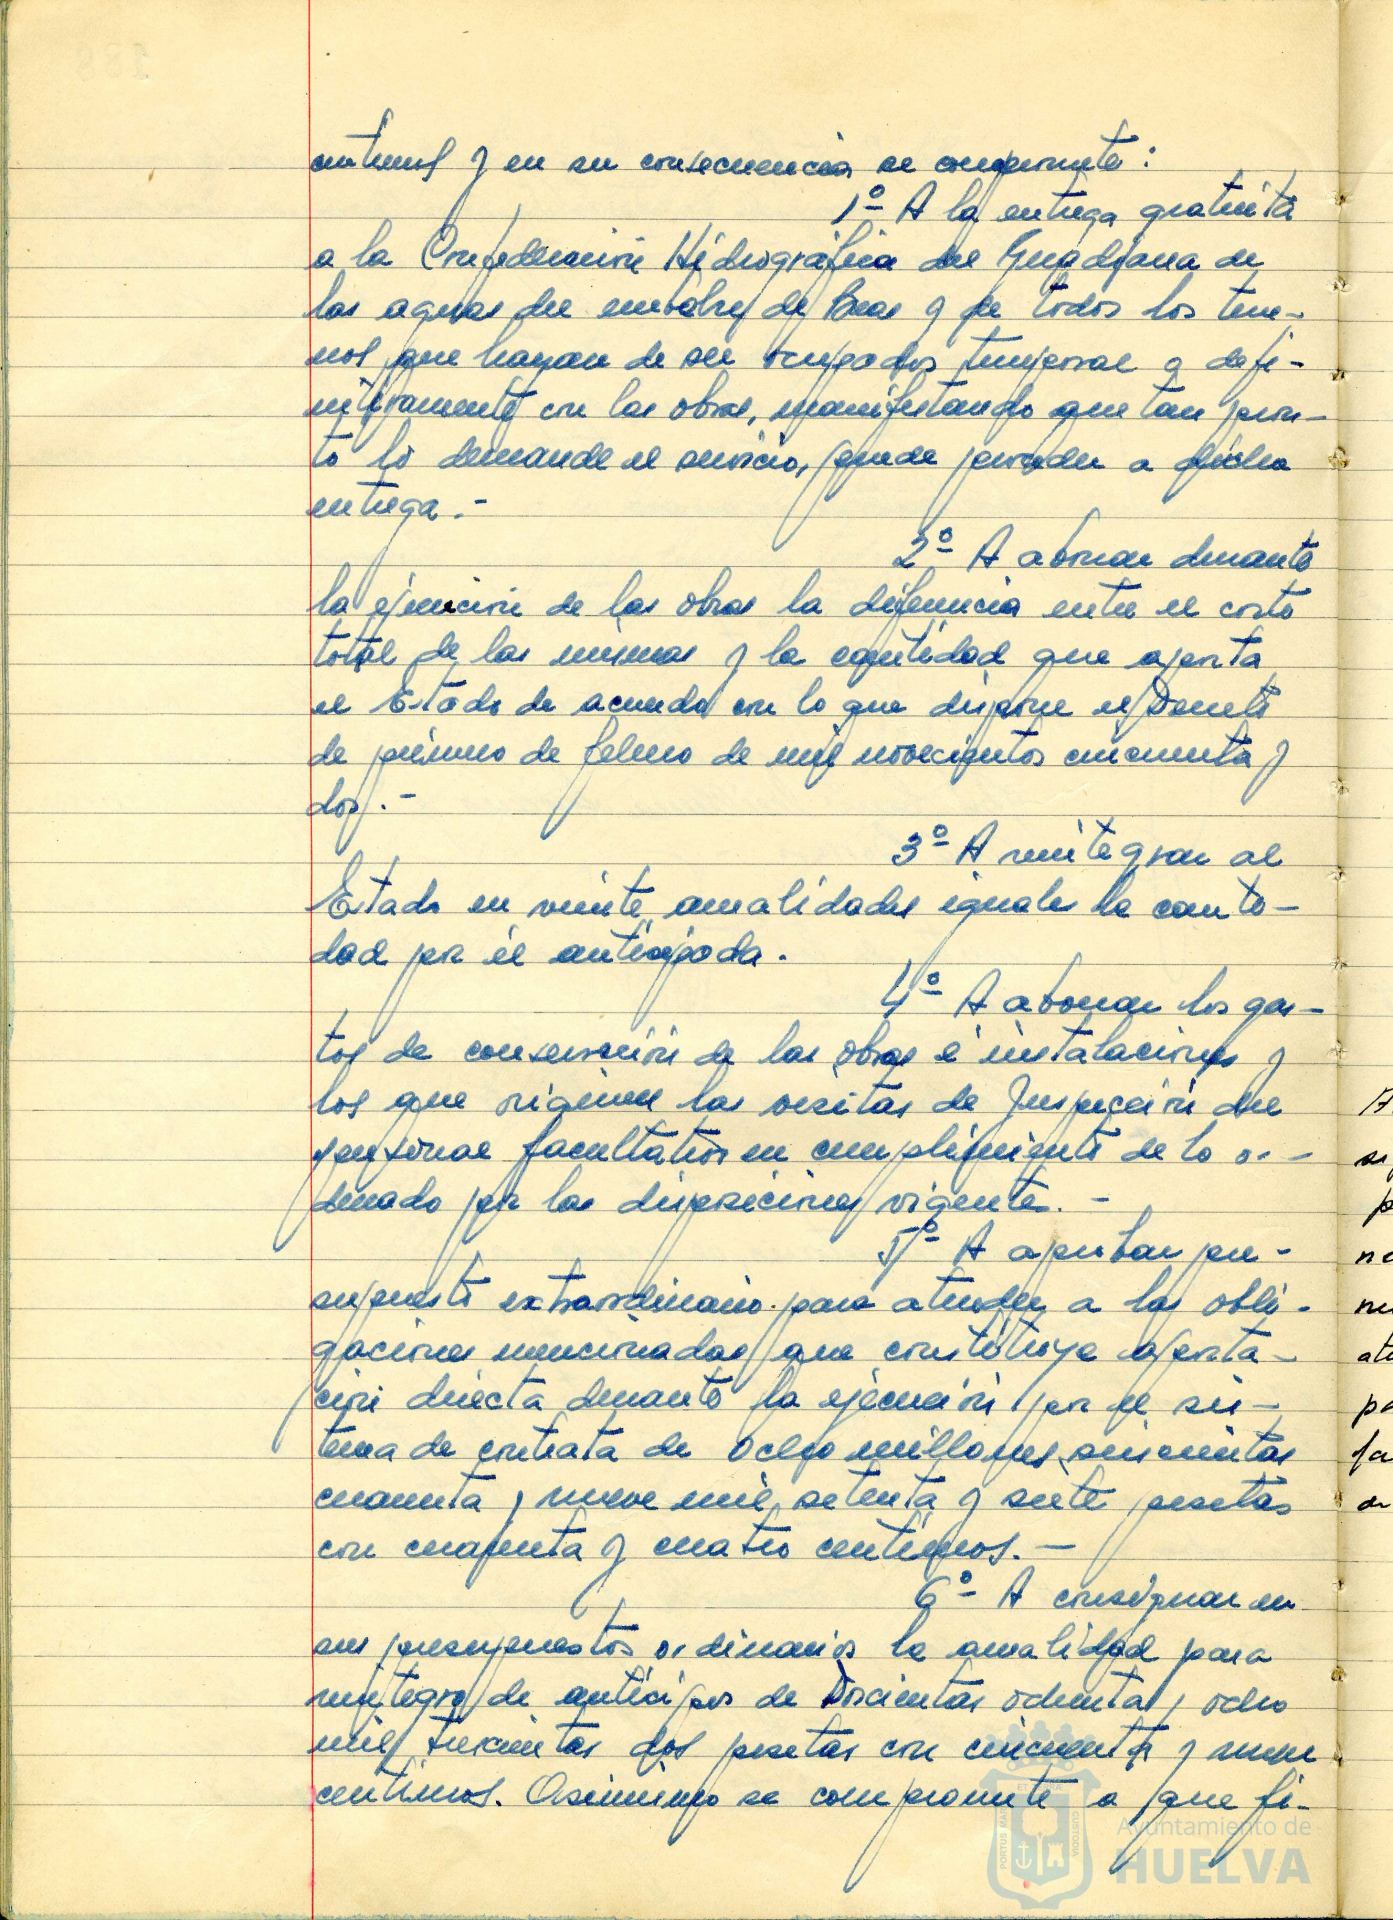 centimos y en su consecuencia se compromete:
1º A la entrega gratuita
a la Confederación Hidrográfica del Guadiana de
las aguas del embalse de Beas y de todos los terre-
nos que hayan de ser ocupados temporal o defi-
nitivamente con las obras, manifestando que tan pron-
to lo demande el servicio, puede proceder a dicha
entrega.-
2º A abonar durante
la ejecución de las obras la diferencia entre el costo
total de las mismas y la cantidad que aporta
el Estado de acuerdo con lo que dispone el Decreto
de primero de febrero de mil novecientos cincuenta y
dos.-
3º A reintegrar al
Estado en veinte anualidades iguales la canti-
dad por él anticipada.
4º A abonar los gas-
tos de conservación de las obras é instalaciones y
los que originen las visitas de Inspección del
personal facultativo en cumplimiento de lo or-
denado por las disposiciones vigentes.-
5º A aprobar pre-
supuesto extraordinario para atender a las obli-
gaciones mencionadas que constituye aporta-
ción directa durante la ejecución por el sis-
tema de contrata de ocho millones seiscientas
cuarenta y nueve mil setenta y siete pesetas
con cuarenta y cuatro centimos.-
6º A consignar en
sus presupuestos ordinarios la anualidad para
reintegro de anticipos de Doscientas ochenta y ocho
mil trescientas dos pesetas con cincuenta y nueve
centimos. Asimismo se compromete a que fi-
Ayuntamiento de
HUELVA
PORTUS MARIS
ET TERRAE
CUSTODIA